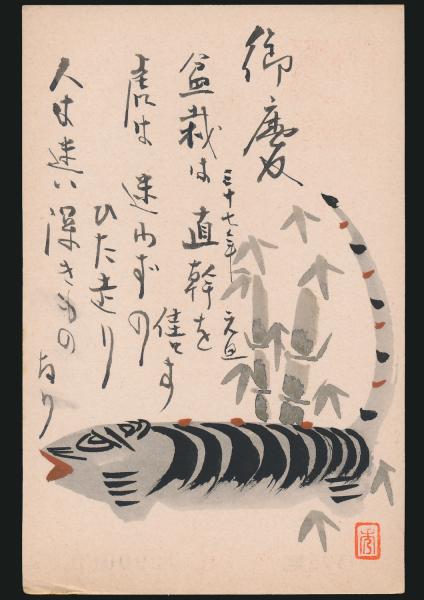 御慶
三十七年 元旦
盆栽は直幹を
佳とす
虎は迷わずの
ひた走り
人は迷い深きもの
なり